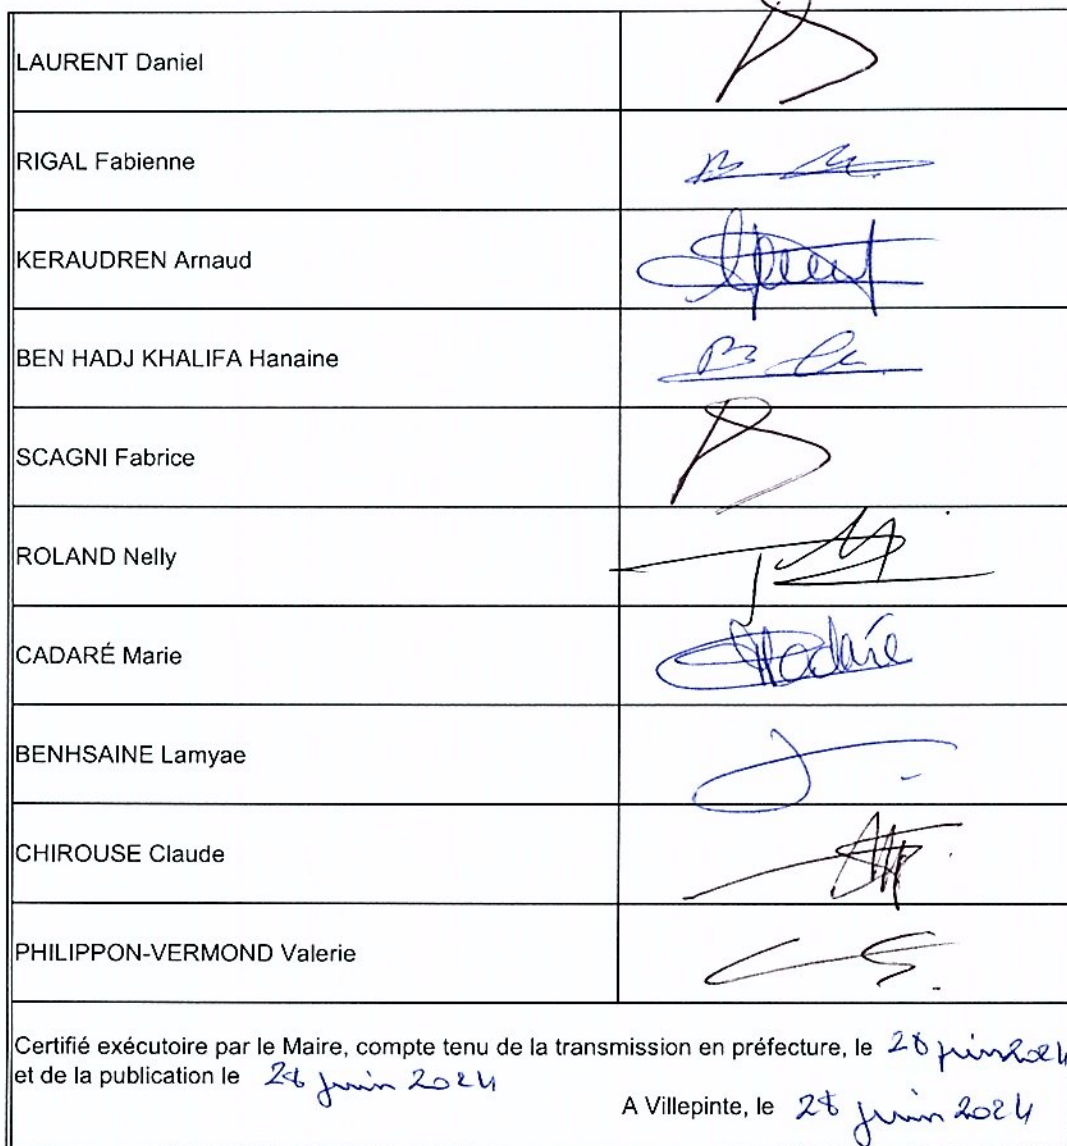 LAURENT Daniel
RIGAL Fabienne
KERAUDREN Arnaud
BEN HADJ KHALIFA Hanaine
SCAGNI Fabrice
ROLAND Nelly
CADARÉ Marie
BENHSAINE Lamyae
CHIROUSE Claude
PHILIPPON-VERMOND Valerie
Certifié exécutoire par le Maire, compte tenu de la transmission en préfecture, le 28 juin 2024
et de la publication le 28 juin 2024
A Villepinte, le 28 juin 2024